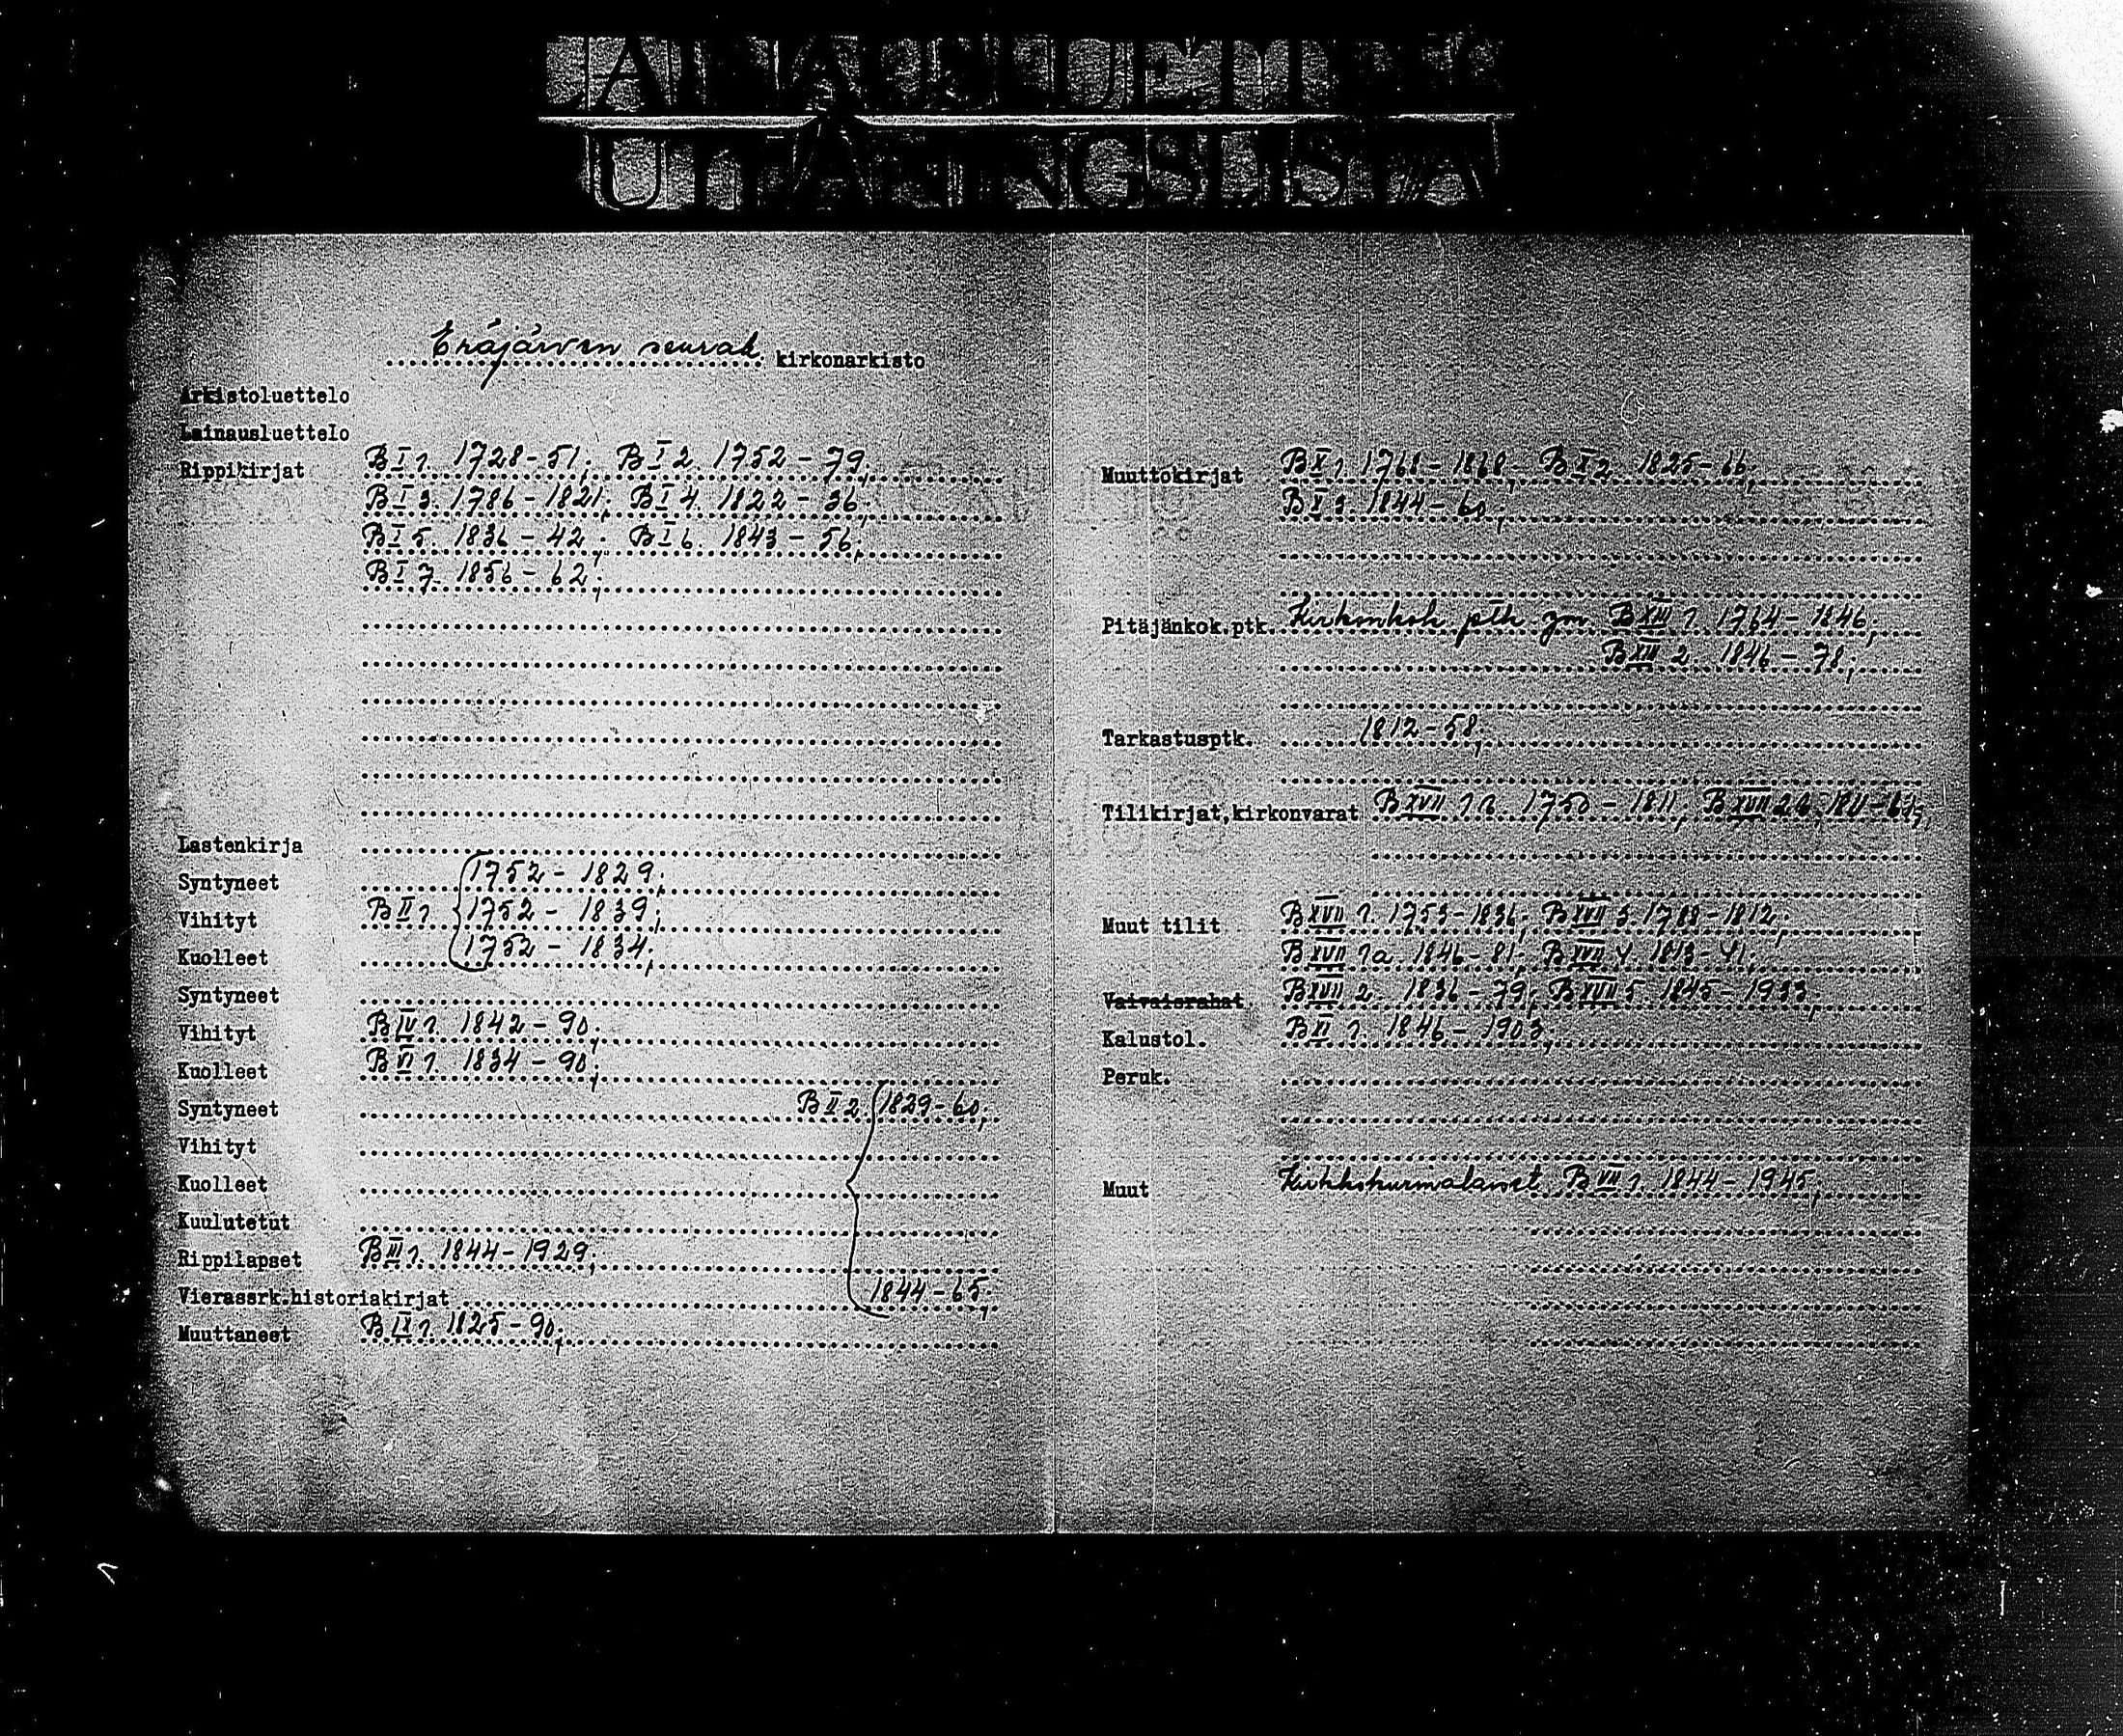 LAINAUSLUETTELO
UTLÅNINGSLISTA
Eräjärven seurak. kirkonarkisto
Arkistoluettelo
Lainausluettelo
Rippikirjat B I 1. 1728-51; B I 2 1752-79;
B I 3. 1786-1821; B I 4. 1822-36;
B I 5. 1836-42; B I 6. 1843-56;
B I 7. 1856-62;
Lastenkirja
Syntyneet 1752-1829;
Vihityt B II 1. 1752-1839;
Kuolleet 1752-1834;
Syntyneet
Vihityt B IV 1. 1842-90;
Kuolleet B VI 1. 1834-90;
Syntyneet B II 2. 1829-60;
Vihityt
Kuolleet
Kuulutetut
Rippilapset B III 1. 1844-1929;
Vierassrk.historiakirjat 1844-65;
Muuttaneet B IX 1. 1825-90;
Muuttokirjat B X 1. 1768-1868; B X 2. 1825-66;
B X 3. 1844-60;
Pitäjänkok.ptk. Kirkonkok. ptk ym. B XIII 1. 1764-1846;
B XIII 2. 1846-78;
Tarkastusptk. 1812-58;
Tilikirjat,kirkonvarat B XVII 1 1750-1811; B XVII 2
Muut tilit B XVII 1. 1753-1836; B XVII 3. 1788-1812;
B XVII 1a 1846-81; B XVII 4. 1813-41;
Vaivaisrahat B XVII 2. 1836-79; B XVII 5. 1845-1933;
Kalustol. B XI 1. 1846-1903;
Peruk.
Muut Kirkkokurinalaiset B VII 1. 1844-1945;